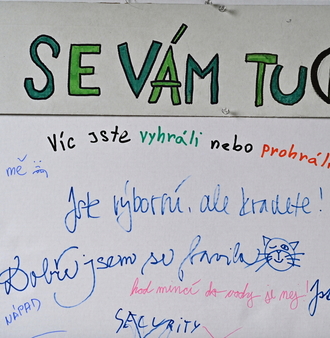 SE VÁM TU
Víc jste vyhráli nebo prohráli
mě
Jste výborní, ale kradete!
Dobře jsem se bavila
hod mincí do vody se nej!
NÁPAD
SECURITY